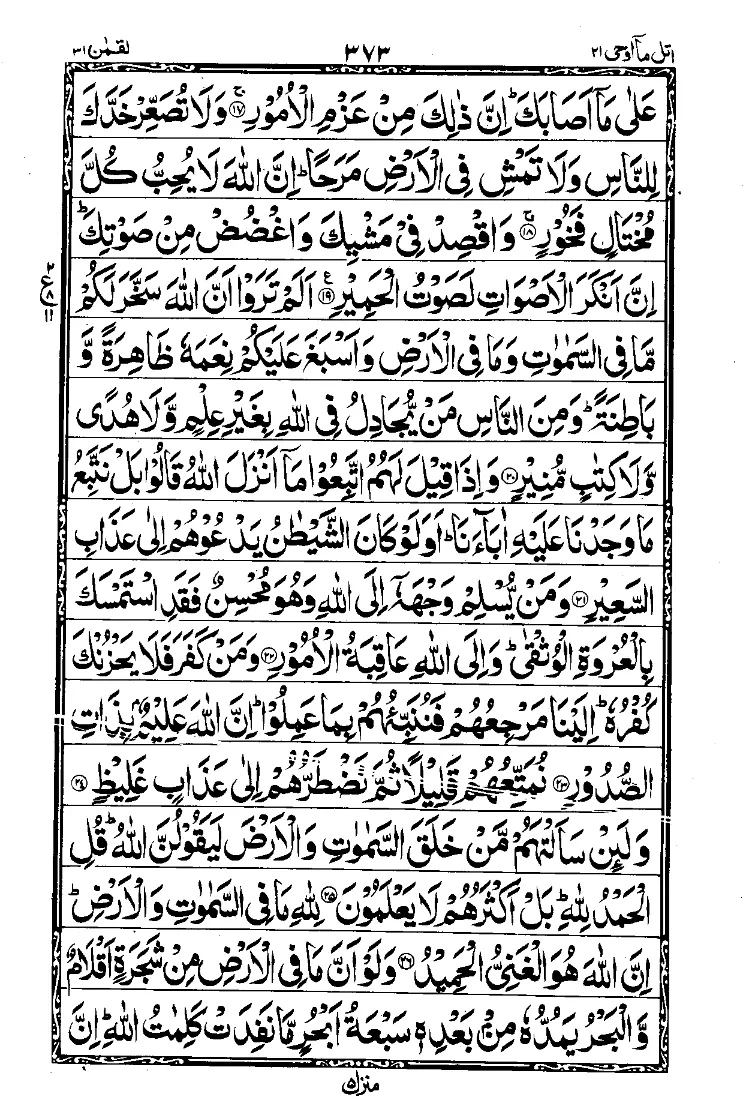 اتل مآ اوحی ۲۱ ۳۷۳ لقمٰن ۳۱
عَلٰی مَاۤ اَصَابَكَ ؕ اِنَّ ذٰلِكَ مِنْ عَزْمِ الْاُمُوْرِ ۚ﴿۱۷﴾ وَ لَا تُصَعِّرْ خَدَّكَ
لِلنَّاسِ وَ لَا تَمْشِ فِی الْاَرْضِ مَرَحًا ؕ اِنَّ اللّٰهَ لَا یُحِبُّ كُلَّ
مُخْتَالٍ فَخُوْرٍ ۚ﴿۱۸﴾ وَ اقْصِدْ فِیْ مَشْیِكَ وَ اغْضُضْ مِنْ صَوْتِكَ ؕ
اِنَّ اَنْكَرَ الْاَصْوَاتِ لَصَوْتُ الْحَمِیْرِ ﴿۱۹﴾ع اَلَمْ تَرَوْا اَنَّ اللّٰهَ سَخَّرَ لَكُمْ
۲ ع ۸ ۱۱
مَّا فِی السَّمٰوٰتِ وَ مَا فِی الْاَرْضِ وَ اَسْبَغَ عَلَیْكُمْ نِعَمَهٗ ظَاهِرَةً وَّ
بَاطِنَةً ؕ وَ مِنَ النَّاسِ مَنْ یُّجَادِلُ فِی اللّٰهِ بِغَیْرِ عِلْمٍ وَّ لَا هُدًی
وَّ لَا كِتٰبٍ مُّنِیْرٍ ﴿۲۰﴾ وَ اِذَا قِیْلَ لَهُمُ اتَّبِعُوْا مَاۤ اَنْزَلَ اللّٰهُ قَالُوْا بَلْ نَتَّبِعُ
مَا وَجَدْنَا عَلَیْهِ اٰبَآءَنَا ؕ اَوَ لَوْ كَانَ الشَّیْطٰنُ یَدْعُوْهُمْ اِلٰی عَذَابِ
السَّعِیْرِ ﴿۲۱﴾ وَ مَنْ یُّسْلِمْ وَجْهَهٗۤ اِلَی اللّٰهِ وَ هُوَ مُحْسِنٌ فَقَدِ اسْتَمْسَكَ
بِالْعُرْوَةِ الْوُثْقٰی ؕ وَ اِلَی اللّٰهِ عَاقِبَةُ الْاُمُوْرِ ﴿۲۲﴾ وَ مَنْ كَفَرَ فَلَا یَحْزُنْكَ
كُفْرُهٗ ؕ اِلَیْنَا مَرْجِعُهُمْ فَنُنَبِّئُهُمْ بِمَا عَمِلُوْا ؕ اِنَّ اللّٰهَ عَلِیْمٌۢ بِذَاتِ
الصُّدُوْرِ ﴿۲۳﴾ نُمَتِّعُهُمْ قَلِیْلًا ثُمَّ نَضْطَرُّهُمْ اِلٰی عَذَابٍ غَلِیْظٍ ﴿۲۴﴾
وَ لَئِنْ سَاَلْتَهُمْ مَّنْ خَلَقَ السَّمٰوٰتِ وَ الْاَرْضَ لَیَقُوْلُنَّ اللّٰهُ ؕ قُلِ
الْحَمْدُ لِلّٰهِ ؕ بَلْ اَكْثَرُهُمْ لَا یَعْلَمُوْنَ ﴿۲۵﴾ لِلّٰهِ مَا فِی السَّمٰوٰتِ وَ الْاَرْضِ ؕ
اِنَّ اللّٰهَ هُوَ الْغَنِیُّ الْحَمِیْدُ ﴿۲۶﴾ وَ لَوْ اَنَّ مَا فِی الْاَرْضِ مِنْ شَجَرَةٍ اَقْلَامٌ
وَّ الْبَحْرُ یَمُدُّهٗ مِنْۢ بَعْدِهٖ سَبْعَةُ اَبْحُرٍ مَّا نَفِدَتْ كَلِمٰتُ اللّٰهِ ؕ اِنَّ
منزل ۵